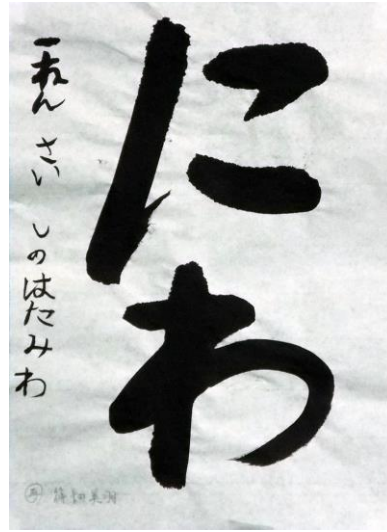 にわ
一ねん さい しのはたみわ